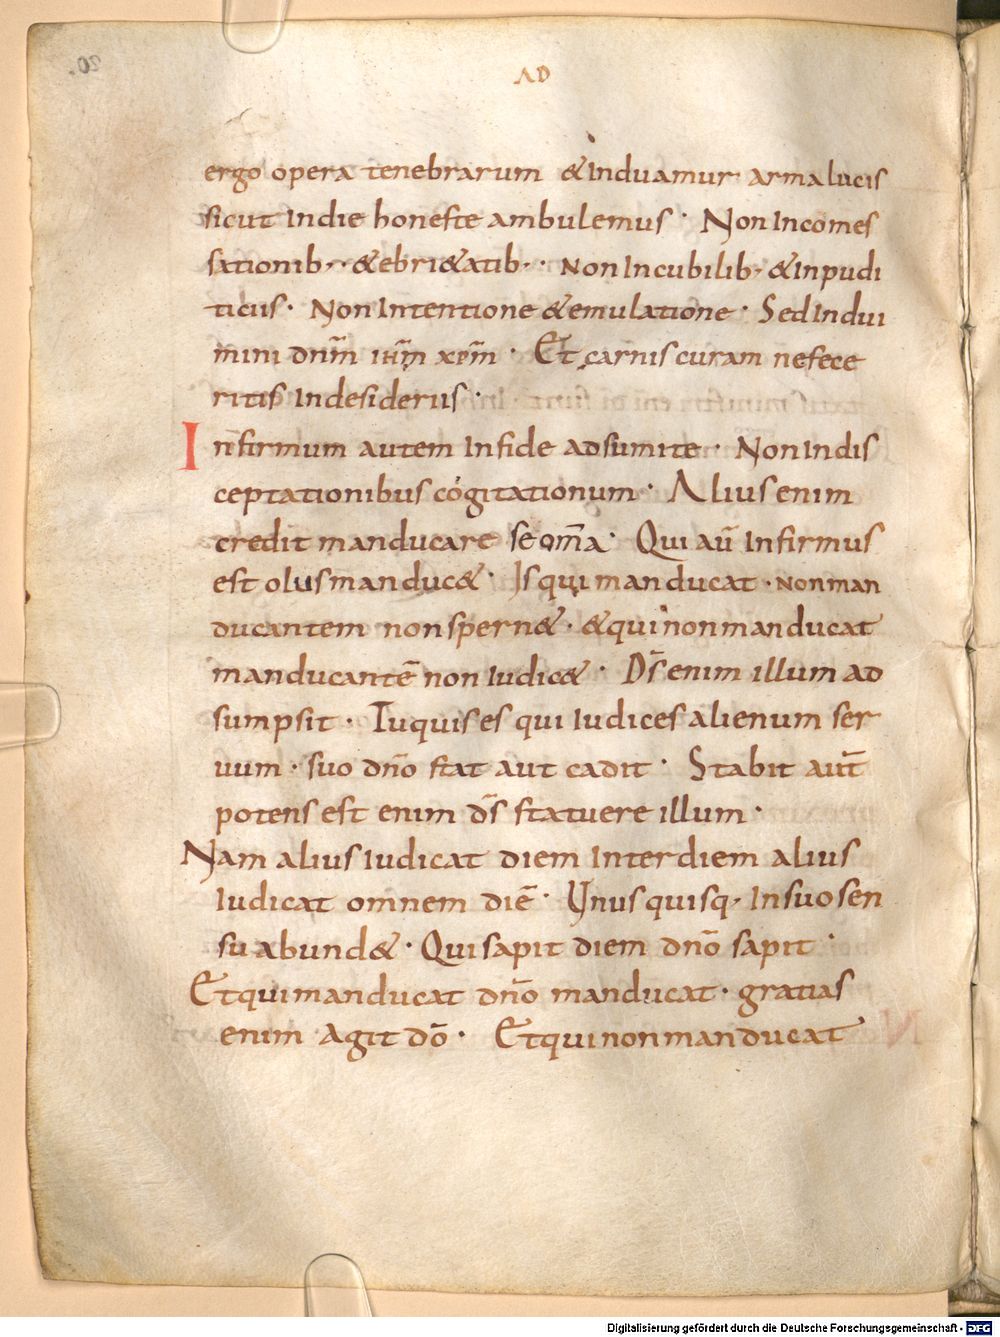 AD
ergo opera tenebrarum & Induamur arma lucis
sicut Indie honeste ambulemus · Non Incomes
sationib·· & ebri&atib·· Non Incubilib· & Inpudi
ticiis· Non Intentione & emulatione · Sed Indui
mini dnm̄ ihm̄ xpm̄ · Et carnis curam nefece
ritis Indesideriis ·
Infirmum autem Infide adsumite · Non Indis
ceptationibus cogitationum · Alius enim
credit manducare se om̄a · Qui aū Infirmus
est olus manduc& · Is qui manducat · non man
ducantem non spern& · & qui non manducat
manducantē non Iudic& · Ds̄ enim illum ad
sumpsit · Tu quis es qui Iudices alienum ser
uum · suo dn̄o stat aut cadit · Stabit aut̄
potens est enim ds̄ statuere illum ·
Nam alius Iudicat diem Inter diem alius
Iudicat omnem diē · Unus quisq· Insuo sen
su abund& · Qui sapit diem dn̄o sapit ·
Et qui manducat dn̄o manducat · gratias
enim Agit dō · Et qui non manducat
Digitalisierung gefördert durch die Deutsche Forschungsgemeinschaft - DFG